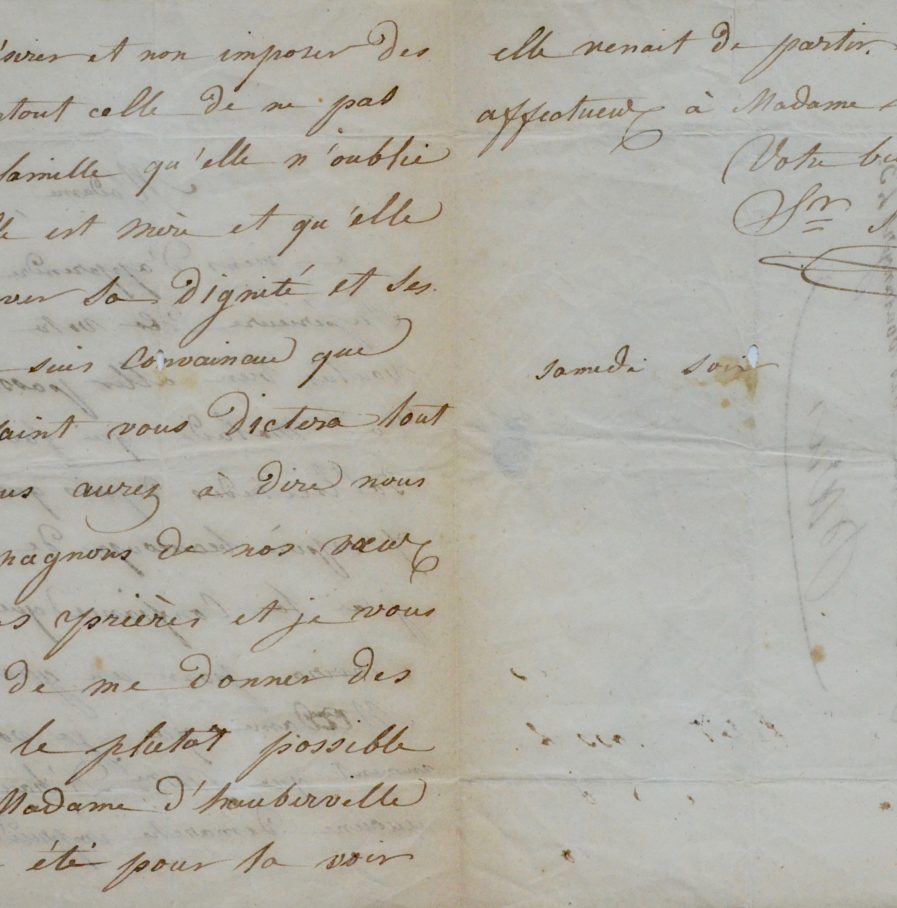 et non imposer des
tout celle de ne pas
famille qu'elle n'oublie
est mère et qu'elle
sa dignité et ses
suis convaincue que
vous dictera tout
aurez à dire nous
de nos vœux
prières et je vous
de me donner des
le plutôt possible
Madame d'haubervelle
été pour la voir
elle venait de partir.
affectueux à Madame
Votre
Sr
samedi soir